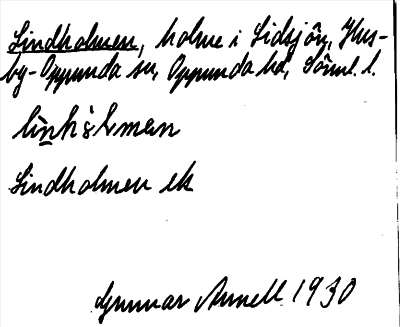 Lindholmen, holme i Lidsjön, Hus-
by-Oppunda sn, Oppunda hd, Söml. l.
Lindholmen ek
Gunnar Arnell 1930